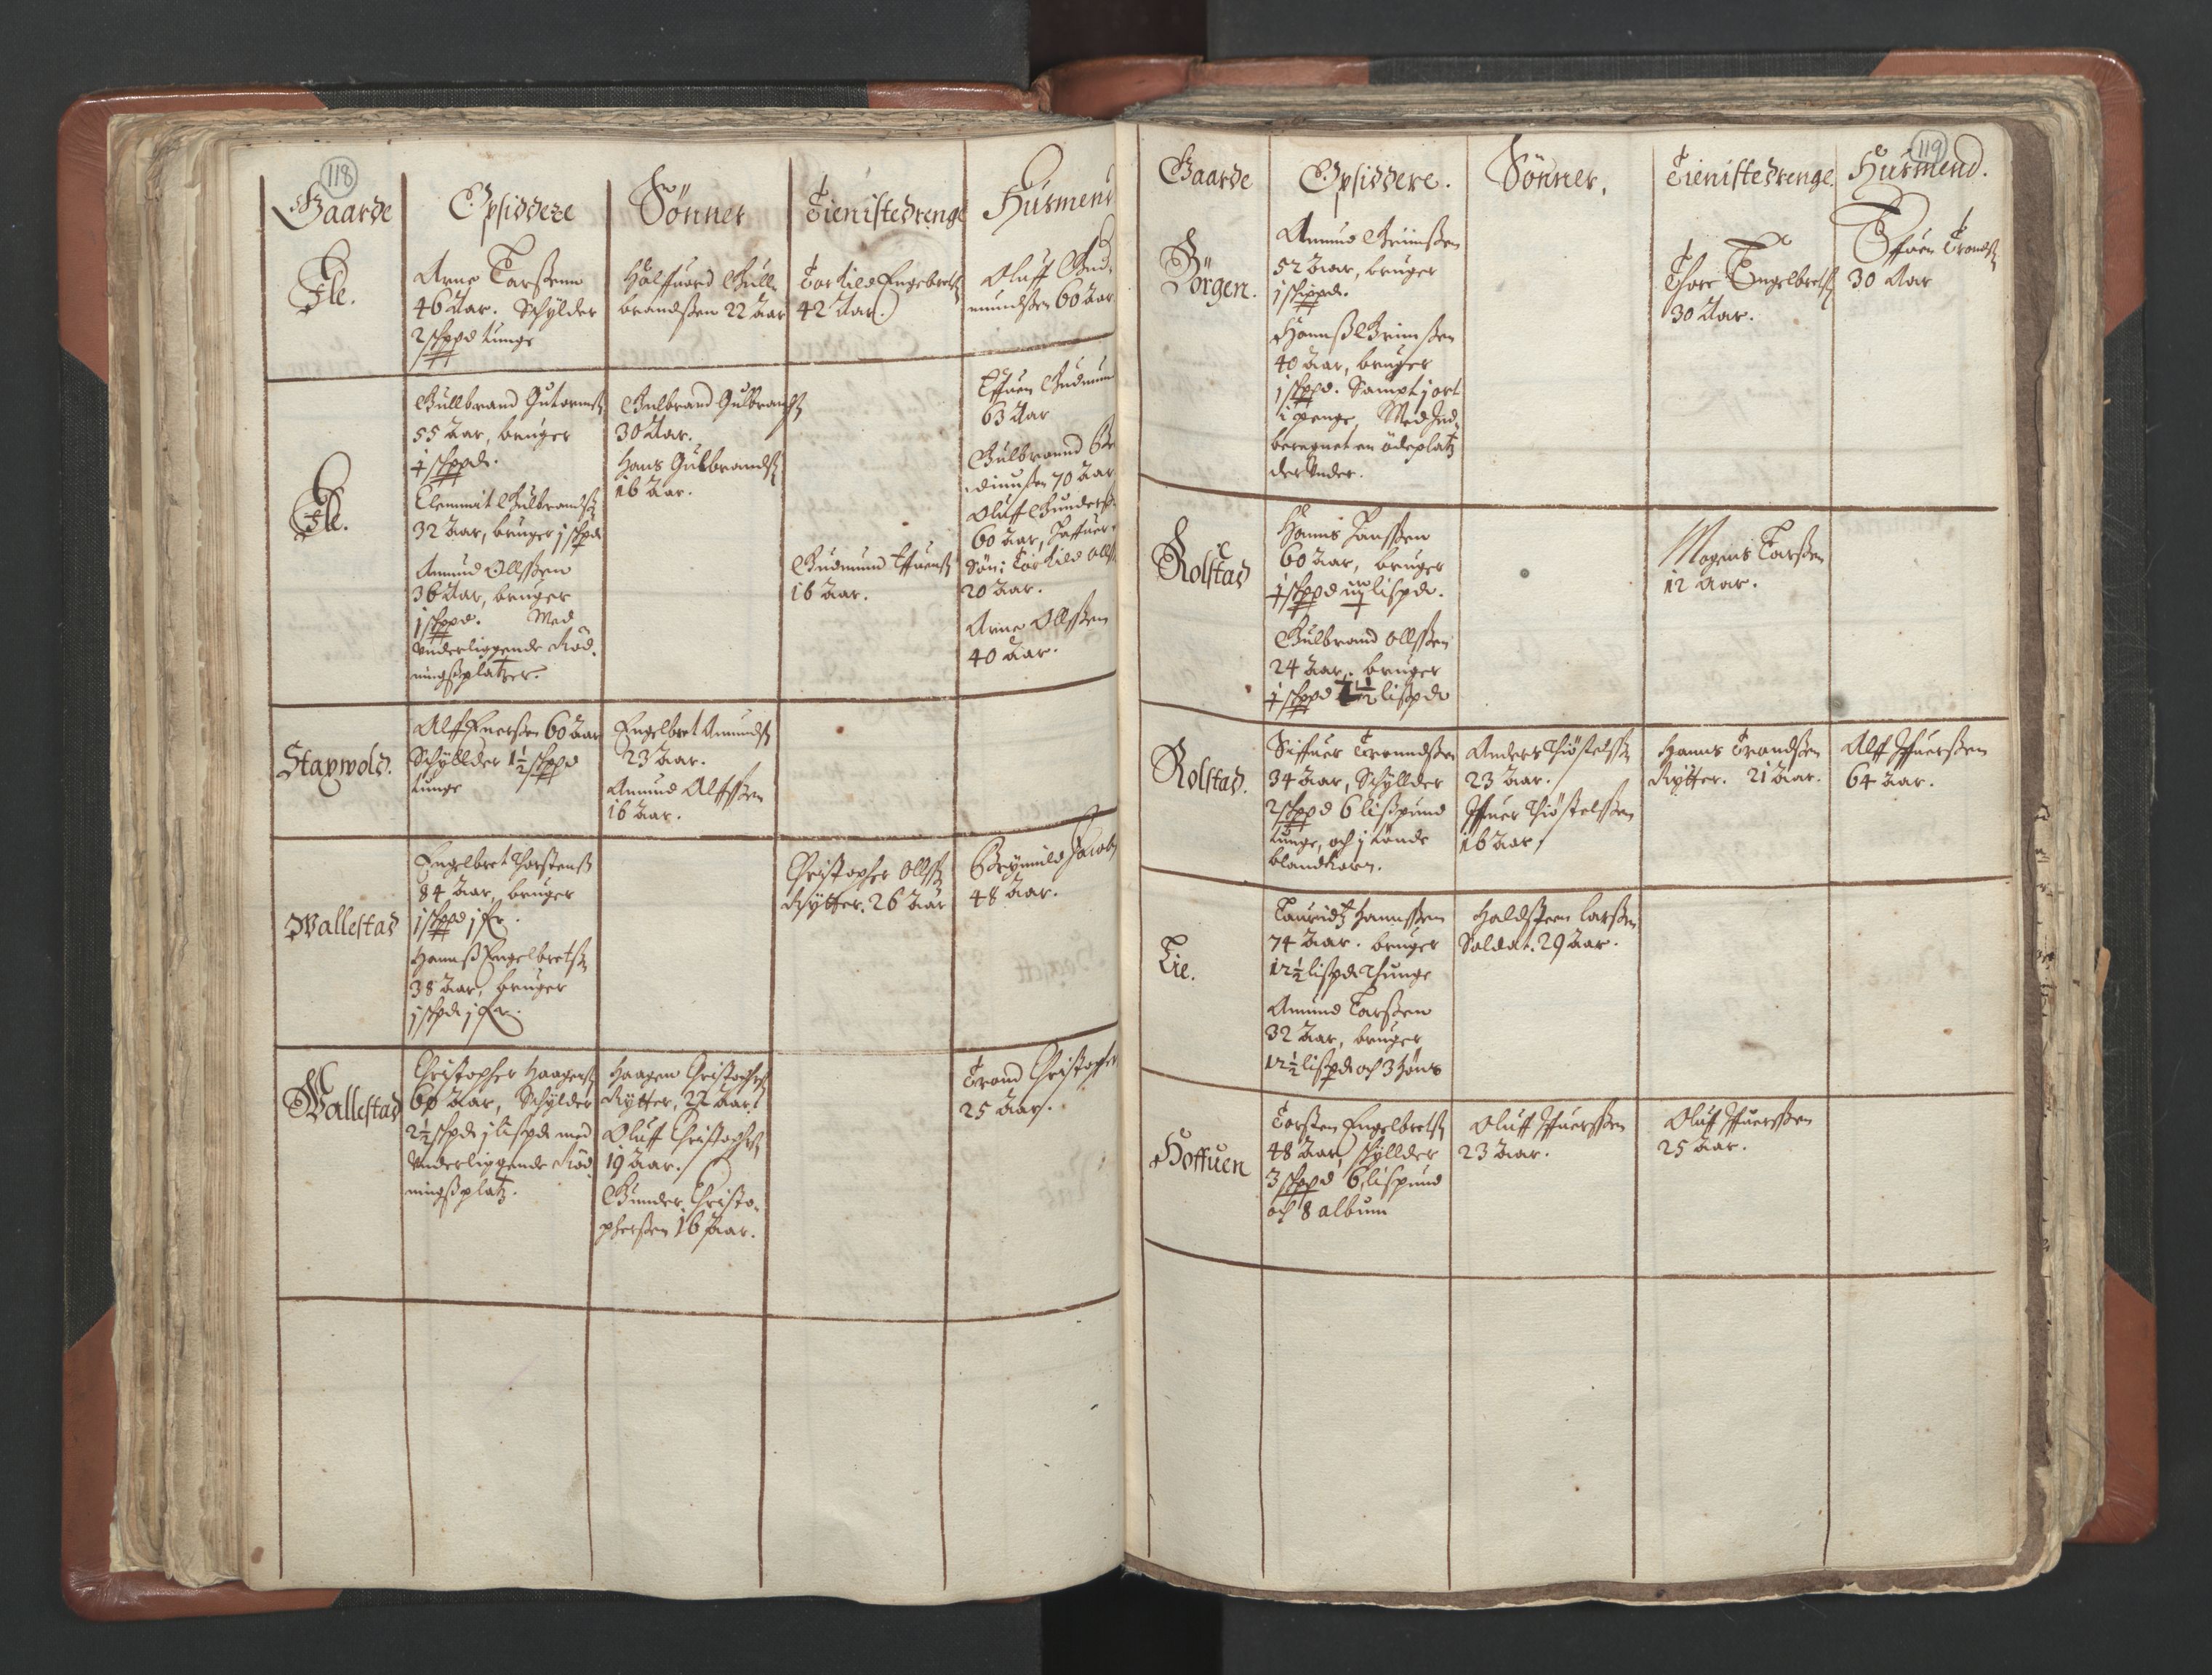 118
Gaarde
Opsiddere
Sønner
Tienistedrenge
Husmend
Fle.
Arne Larssenn
46 Aar. Schylder
2 schppd tunge
Halffuord Gull
brandssen 22 Aar
Torkild Engebrets
42 Aar.
Oluff Gud¬
mundssen 60 Aar
Fle.
Gullbrand Gutorms
55 Aar, bruger
schppd.
Clemmit Gulbrands
32 Aar, bruger j schpd
Amund Ollssen
36 Aar, bruger
j schppd. Med
underliggende Rød¬
ningsplatzer.
Gulbrand Gulbrands
30 Aar.
Hans Gulbrands
16 Aar.
Gudmund Effuens
16 Aar.
Effuen Gudmun
63 Aar
Gulbrannd
70 Aar
Oluff Gunders
60 Aar,
Søn: Torkild Olls
20 Aar.
Arne Ollssen
40 Aar.
Stapwold.
Alff Fuerssen 60 Aar
Schyllder 1½ schppd
tunge
Engelbret Amunds
23 Aar.
Amund Alffssen
16 Aar.
Wallestad
Engelbret Thorstens
84 Aar, bruger
j schppd j fr.
Hanns Engelbrets
38 Aar, bruger
j schpd j fr.
Christopher Olls
Rytter. 26 Aar
Brynnild Jacobs
48 Aar.
Wallestad
Christopher Haagens
60 Aar, Schylder
2½ schpd j lispd med
underliggende Rød
ningsplatz.
Haagen Christophers
Rytter, 22 Aar.
Oluff Christophers
19 Aar.
Gunder Christo¬
pherssen 16 Aar.
Trond Christopher
25 Aar.
119
Gaarde
Opsiddere.
Sønner.
Tienistedrenge.
Husmend.
Börgen.
Amund Grimssen
52 Aar, bruger
j schippd.
Hanns Grimssen
40 Aar, bruger
j schppd. Sampt j ort
i penge, Med Ind¬
beregnet en ödeplatz
der under.
Thore Engelbrets
30 Aar.
Effuen Tronds
30 Aar
Rolstad
Hanns Hanssen
60 Aar, bruger
schppd lispd.
Gulbrand Ollssen
24 Aar, bruger
schppd lispd
Mogens Larssen
12 Aar.
Rolstad.
Siffuer Tronndssen
34 Aar, Schyllder
2 schppd 6 lispund
tunge, och j tønde
blandkorn.
Anders Thiöstelss
23 Aar.
Iffuer Thiöstelssen
16 Aar.
Hanns Trondssen
Rytter. 21 Aar.
Alff Iffuerssen
64 Aar.
Lie.
Lauridtz Hannssen
74 Aar. bruger
12½ lispd Thunge
Amund Larssen
32 Aar, bruger
12½ lispd och 3 høns
Haldsteen Larssen
Soldat. 29 Aar.
Hoffuen
Torsten Engelbrets
48 Aar, schyllder
3 schppd 6 lispund
och 8 album
Oluff Iffuerssen
23 Aar.
Oluff Iffuerssen
25 Aar.